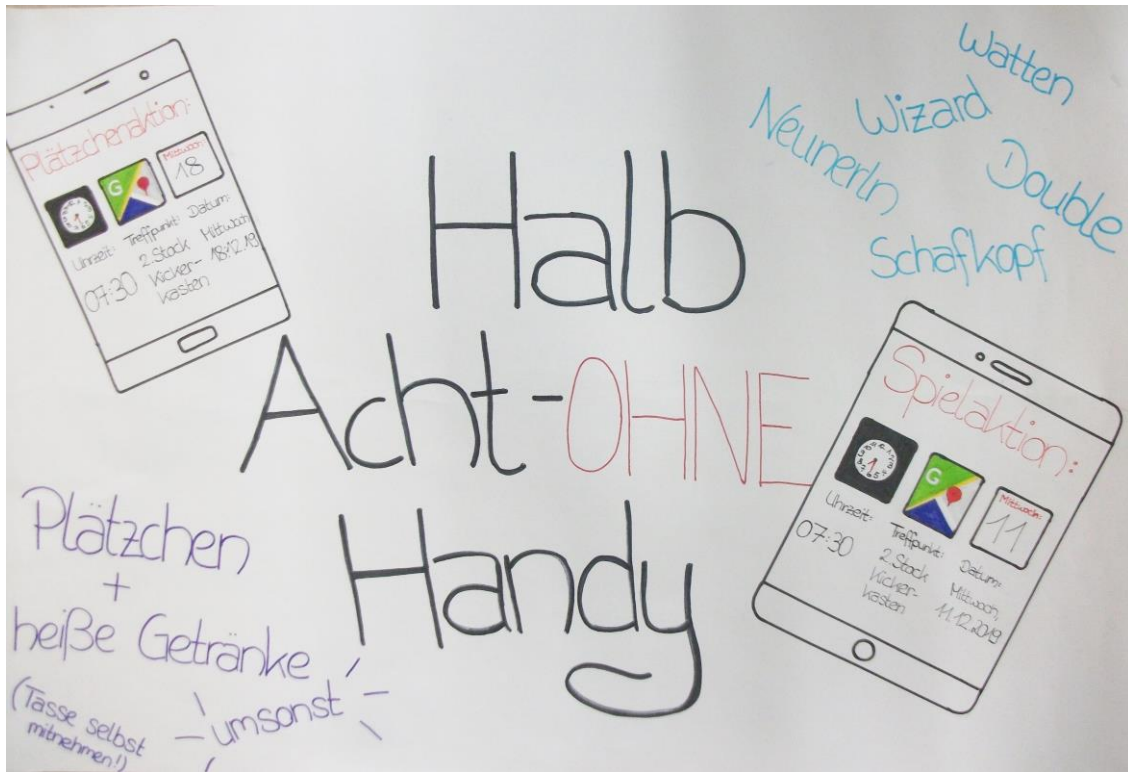 Halb
Acht-OHNE
Handy
Plätzchenaktion:
G
Mittwoch:
18
Uhrzeit:
07:30
Treffpunkt:
2.Stock
Kicker-
kasten
Datum:
Mittwoch
18.12.19
Watten
Wizard
Neunerln
Double
Schafkopf
Spielaktion:
G
Mittwoch:
11
Uhrzeit:
07:30
Treffpunkt:
2.Stock
Kicker-
kasten
Datum:
Mittwoch,
11.12.2019
Plätzchen
+
heiße Getränke
(Tasse selbst
mitnehmen!)
umsonst